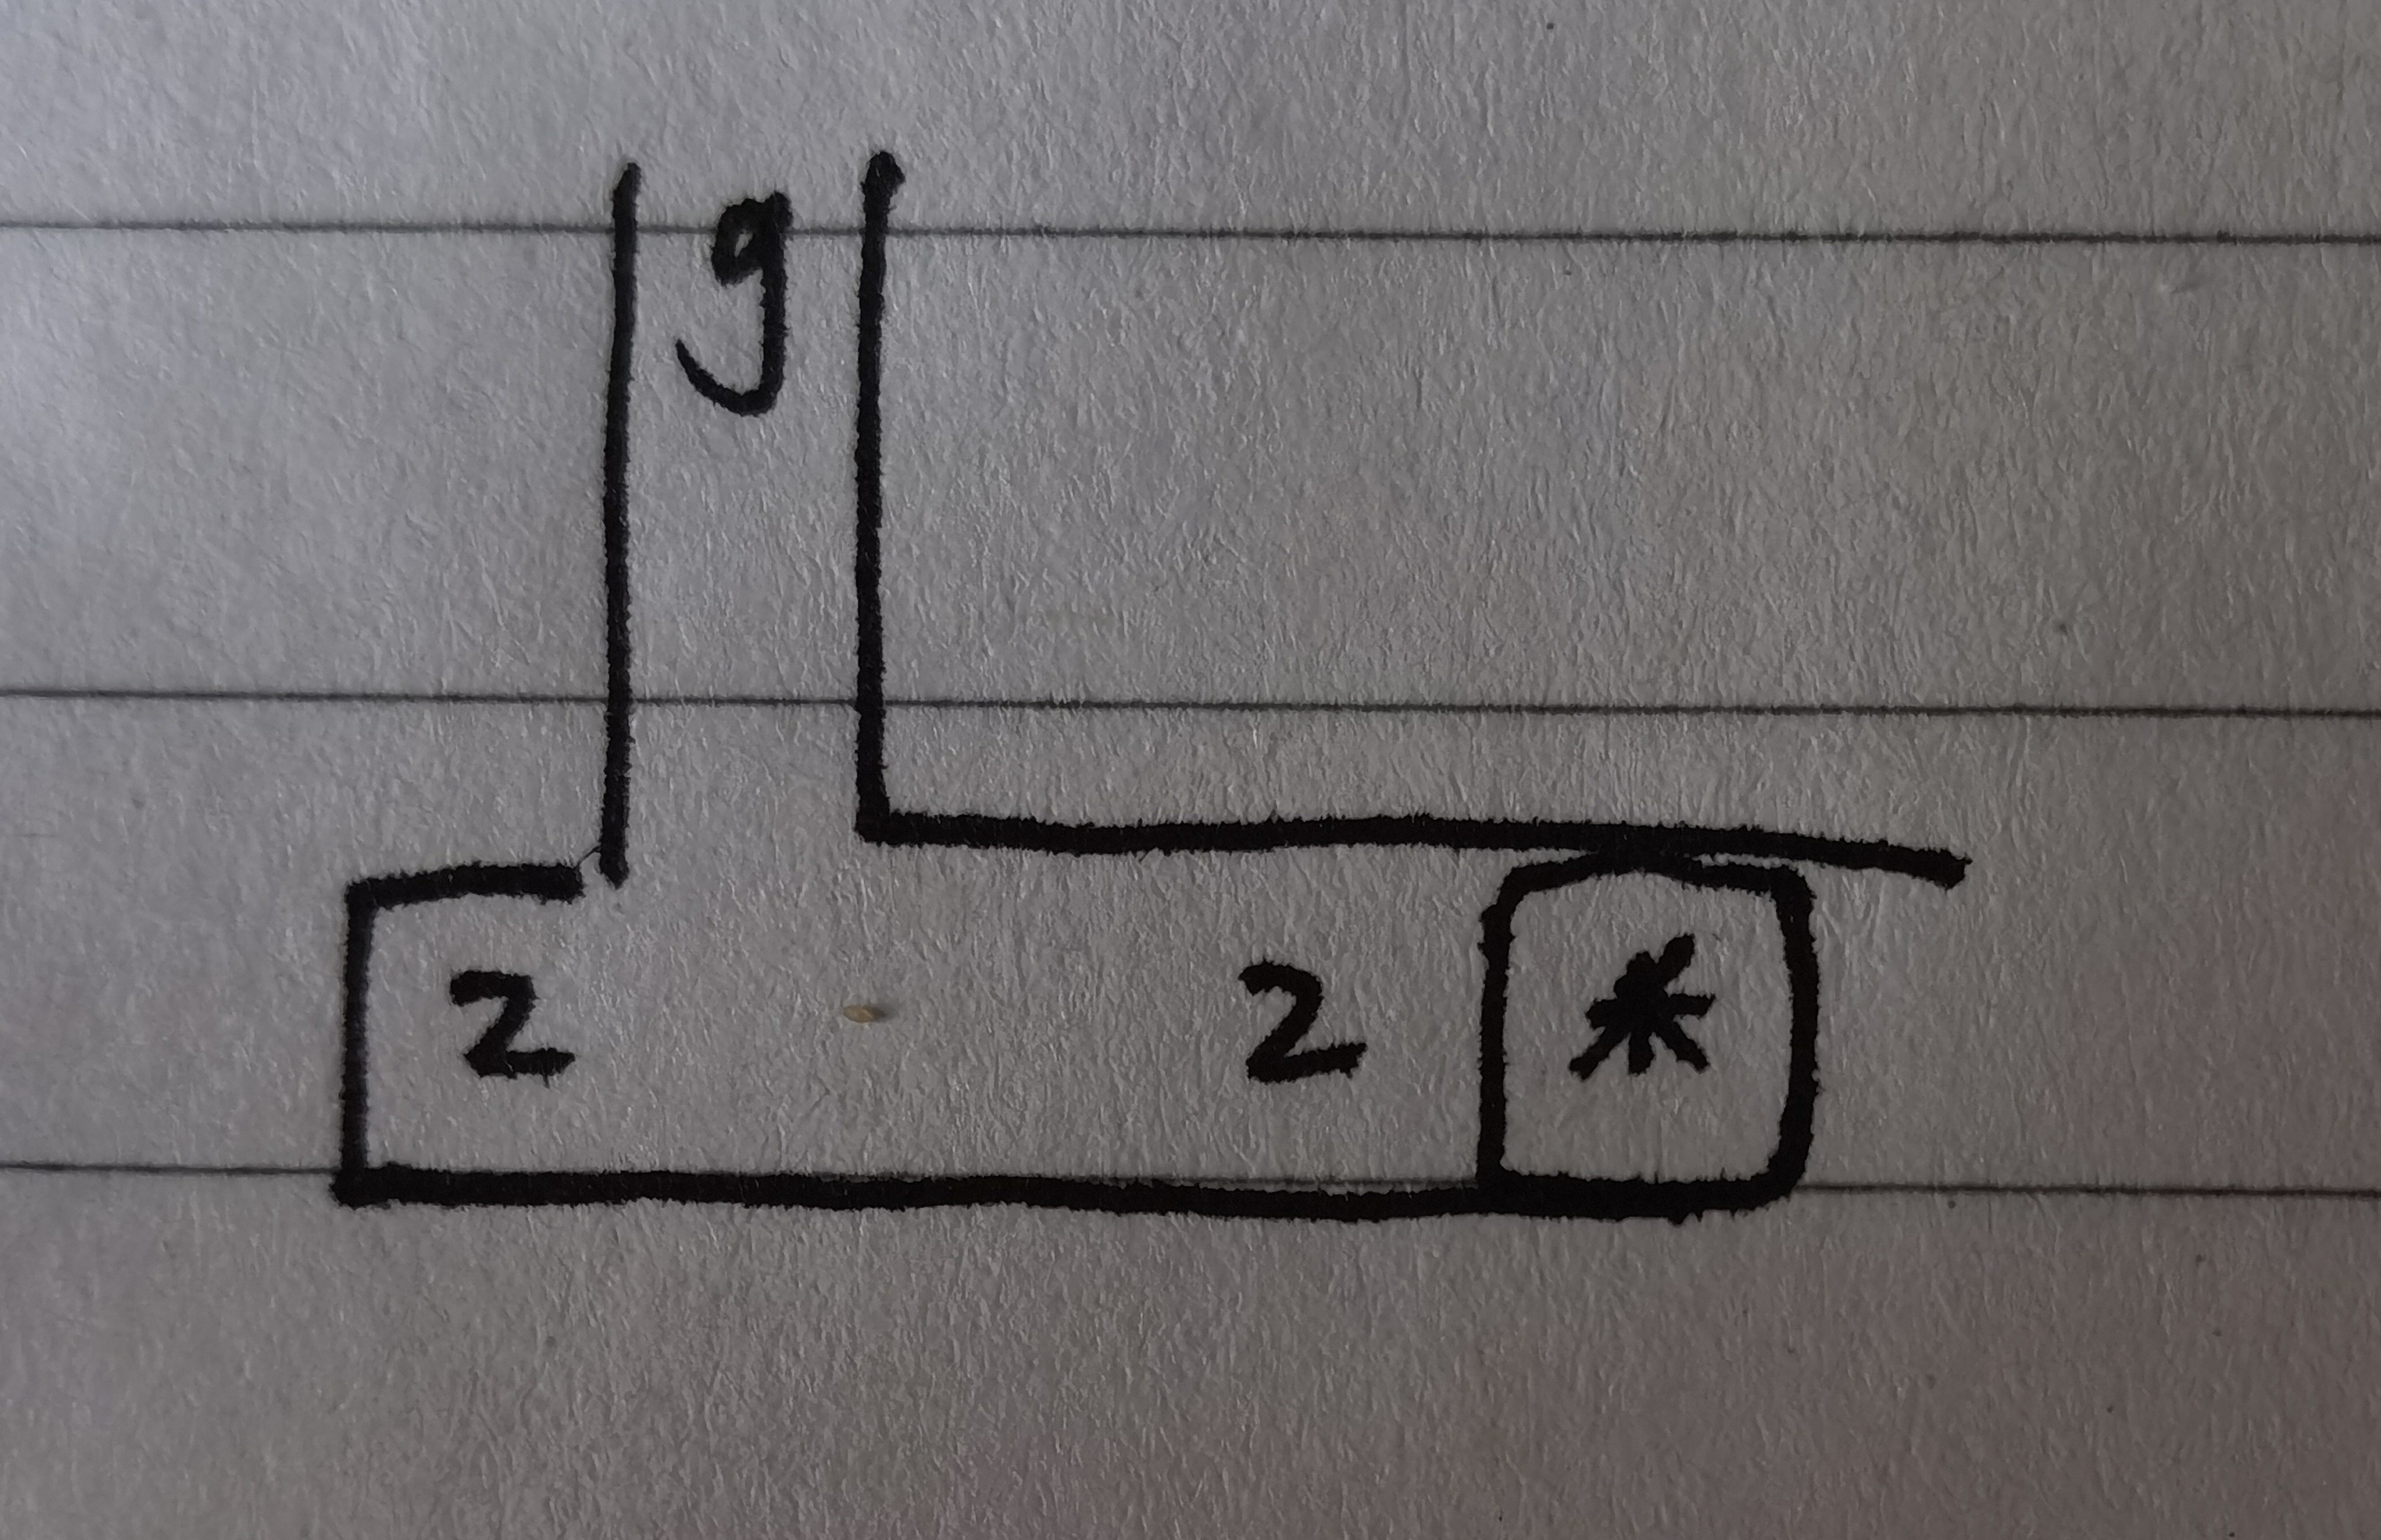 g
2 2 *